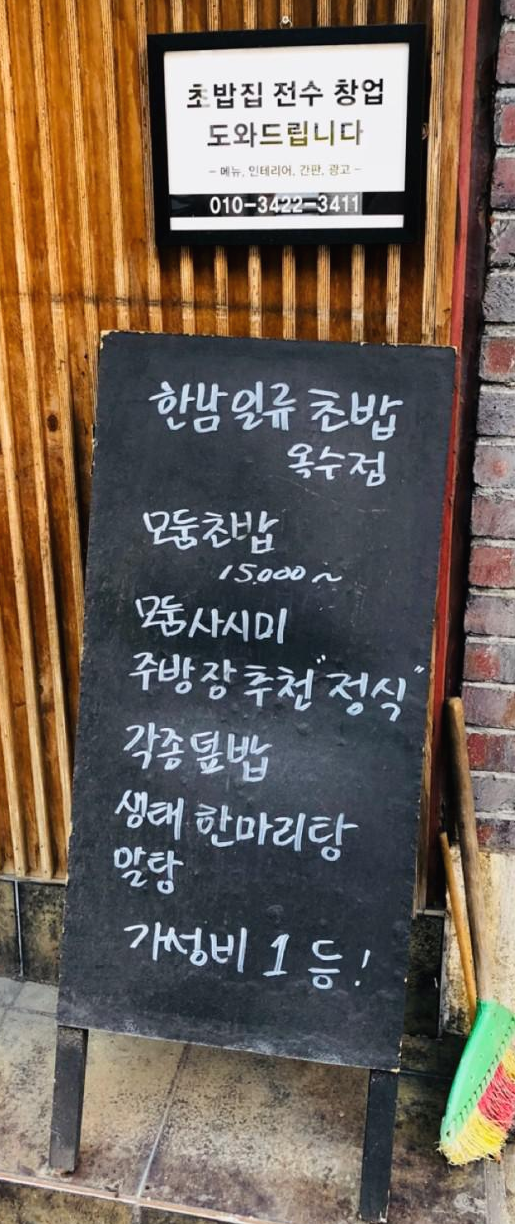 초밥집 전수 창업
도와드립니다
- 메뉴, 인테리어, 간판, 광고 -
010-3422-3411
한남일류 초밥
옥수점
모둠초밥
15.000~
모둠사시미
주방장추천"정식"
각종덮밥
생태 한마리탕
알탕
가성비 1등!